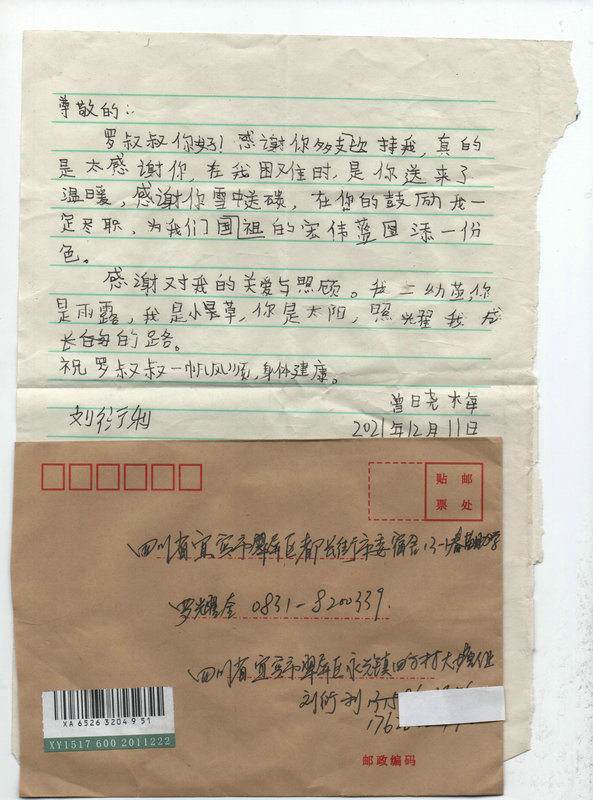 尊敬的：
罗叔叔你好！感谢你多支持我，真的
是太感谢你，在我困难时，是你送来了
温暖，感谢你雪中送碳，在你的鼓励我一
定尽职，为我们国祖的宏伟蓝图添一份
色。
感谢对我的关爱与照顾。我是幼苗，你
是雨露，我是小草，你是太阳，照耀我成
长的路。
祝罗叔叔一帆风顺，身体健康。
曾日尧
刘衍利
2021年12月11日
贴邮
票处
四川省宜宾市翠屏区都长街市委宿舍13-1
罗光耀金 0831-8200339.
四川省宜宾市翠屏区永兴镇四方村
刘衍利
XA 6526 3204 9 51
XY1517 600 2011222
邮政编码